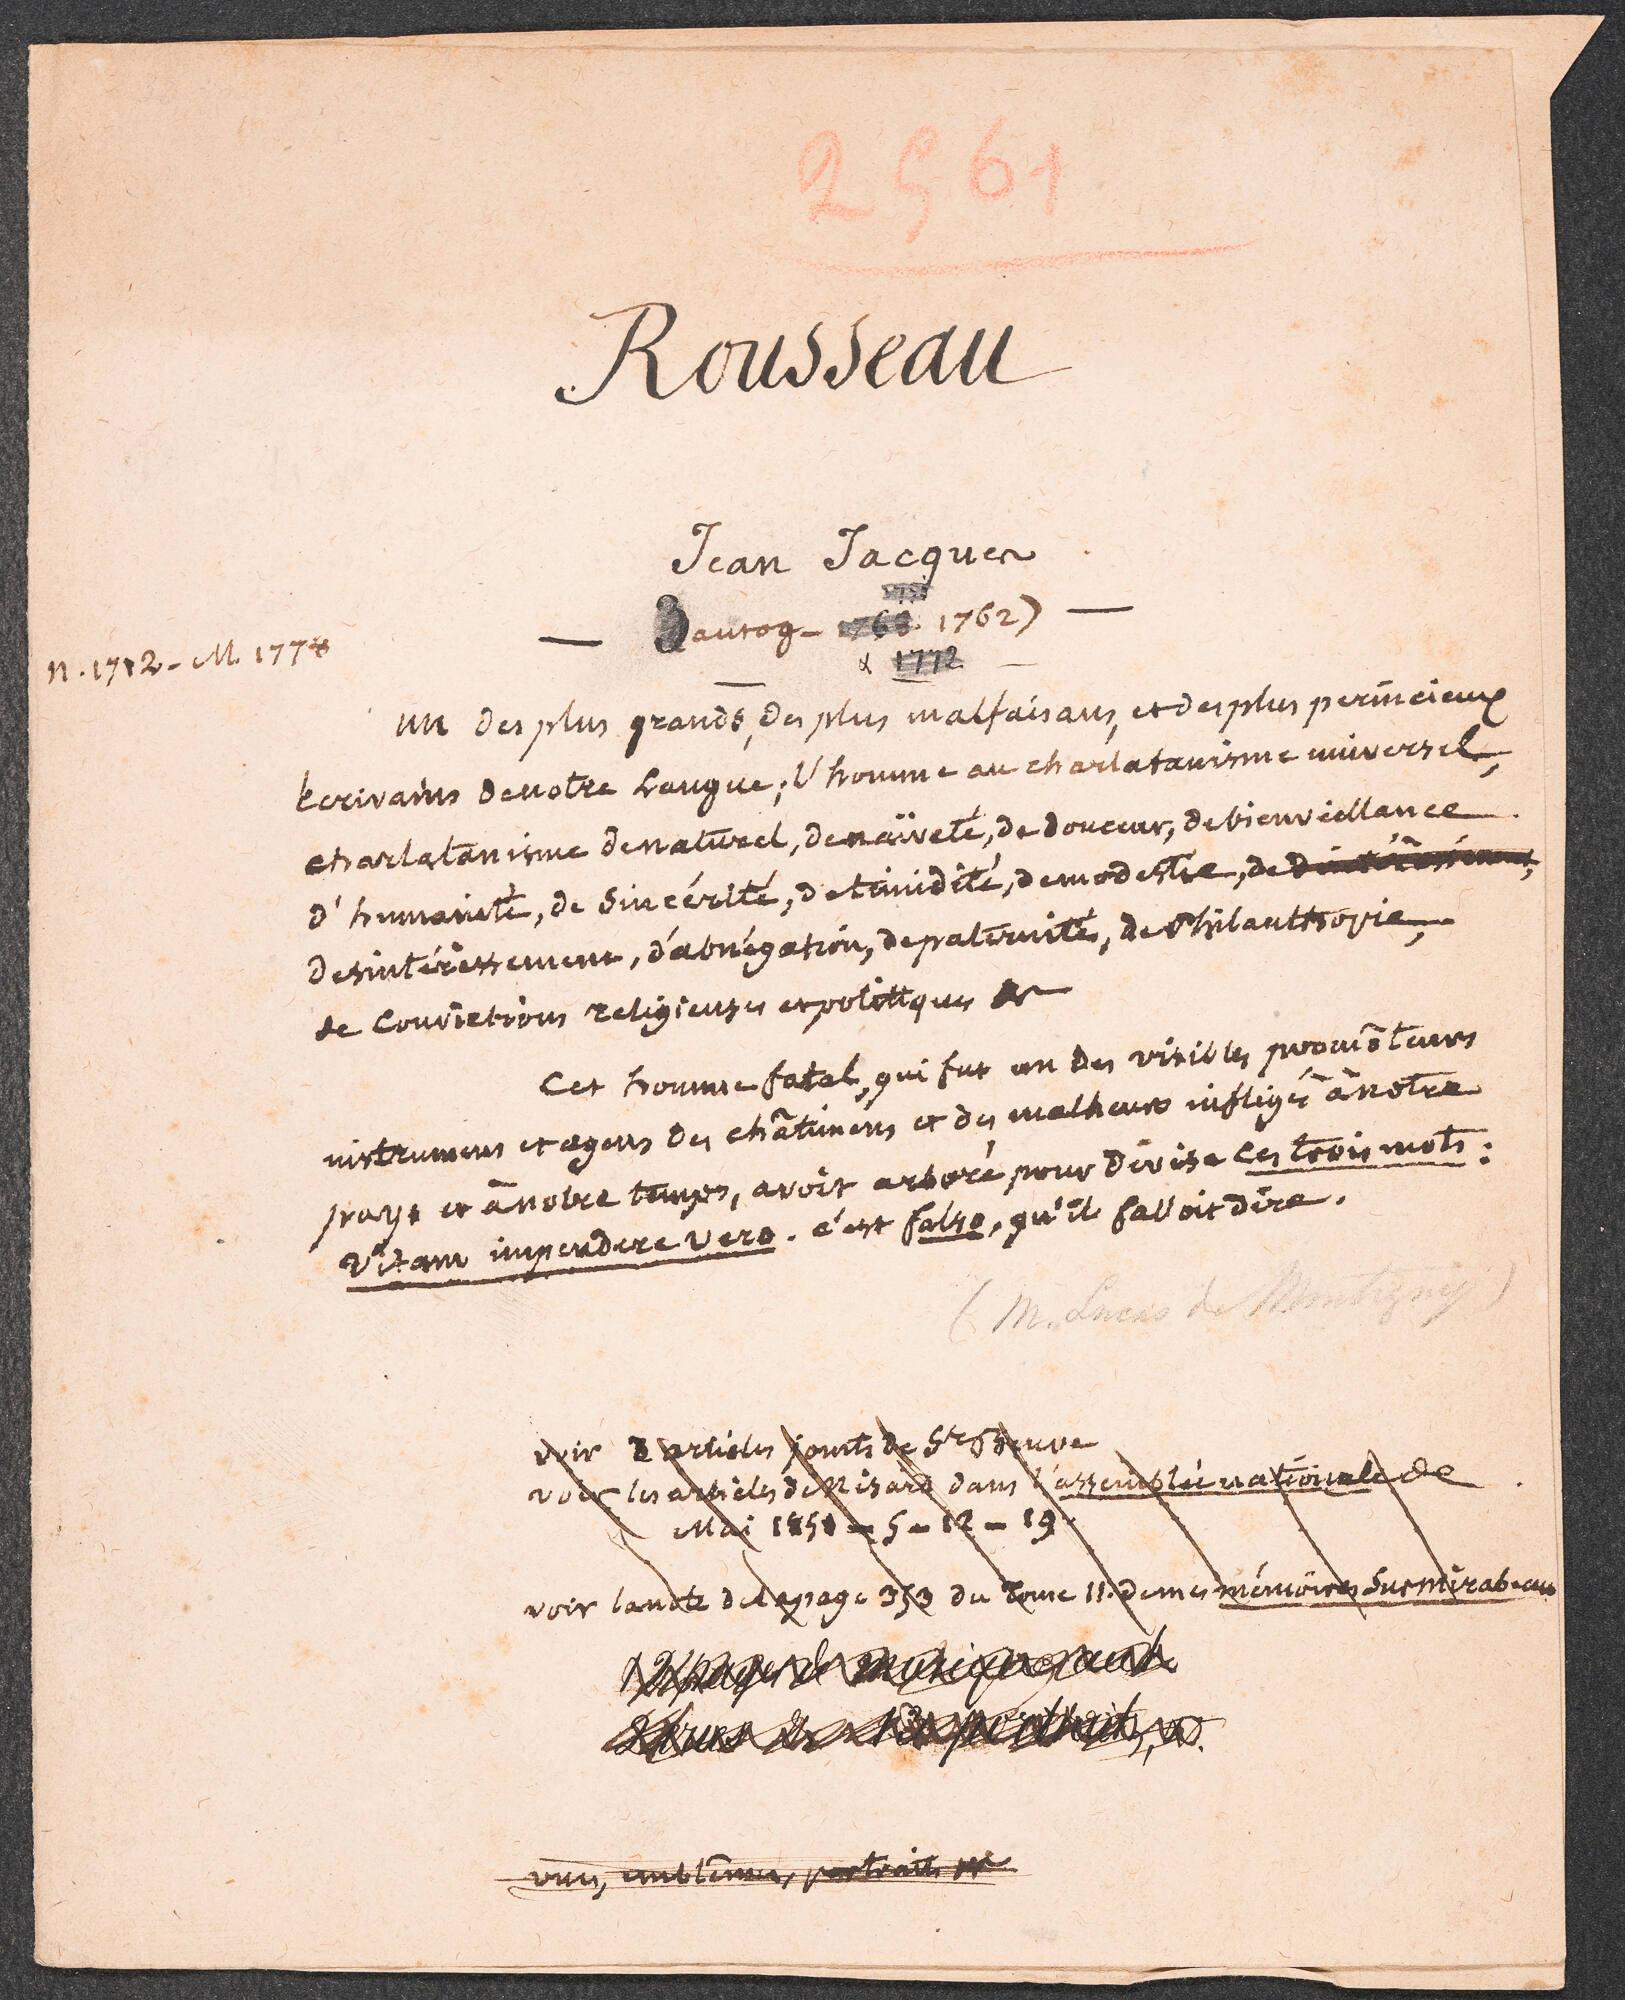 2561
Rousseau
Jean Jacques
— 3 autog – 1768. 1762) —
& 1772
N. 1712 – M. 1778
un des plus grands, des plus malfaisans, et des plus pernicieux
Ecrivains de notre Langue; l'homme au charlatanisme universel,
charlatanisme de naturel, de naïveté, de douceur, de bienveillance
d'humanité, de Sincérité, de timidité, de modestie, de désintéressement,
desintéressement, d'abnégation, de paternité, de Philanthropie,
de Convictions religieuses et politiques &
Cet homme fatal, qui fut un des visibles promôteurs
instrumens et agens des châtimens et des malheurs infligés à notre
pays et à notre temps, avoit arboré pour divise ces trois mots :
Vitam impendere vero. c'est falso, qu'il falloit dire.
(M. Lucas de Montigny)
voir 2 articles joints de Ste Beuve
voir les articles de Nisard dans l'assemblée nationale de
Mai 1851 – 5 – 12 – 19.
voir la note de la page 353 du Tome II. de mes mémoires Sur Mirabeau
12 pages de musique
portraits, &.
vues, emblêmes, portraits &